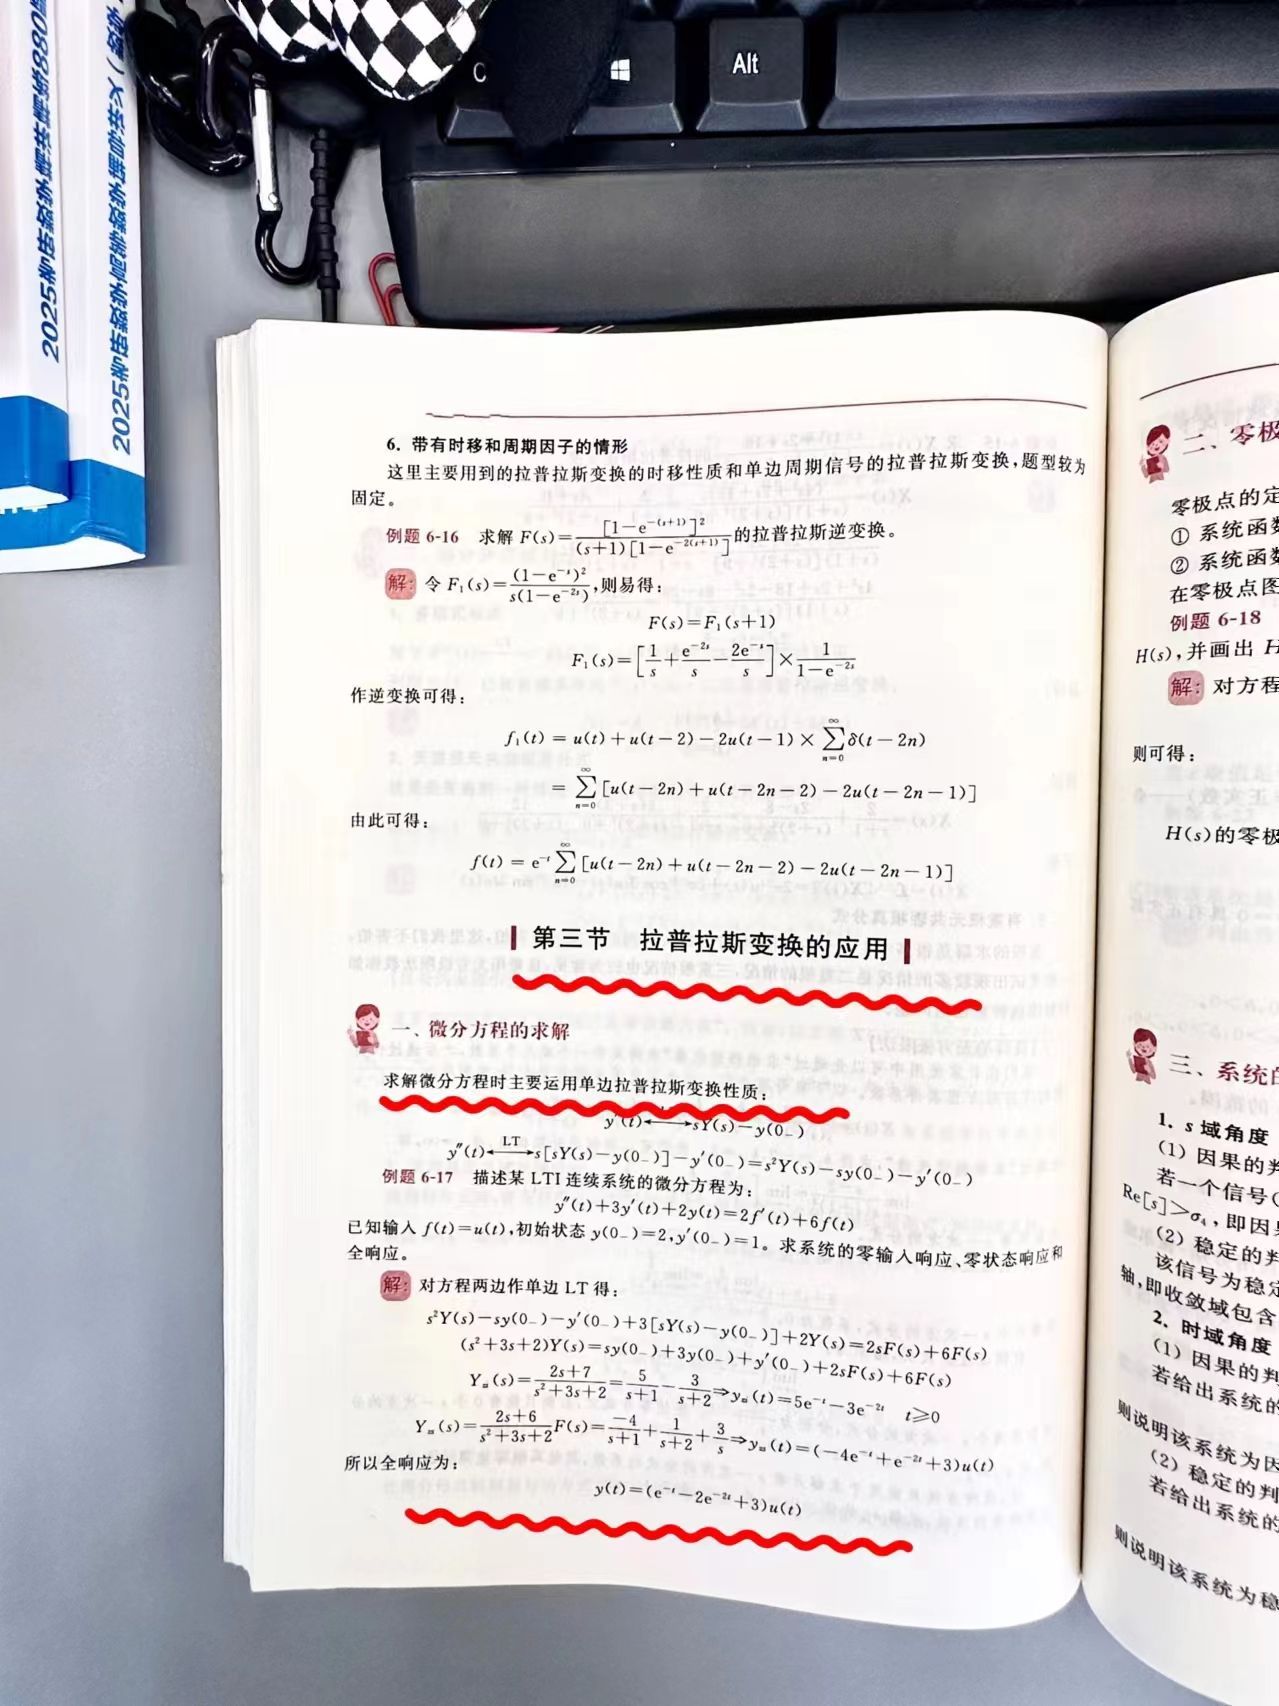 Alt
2025李正数学
2025
6. 带有时移和周期因子的情形
这里主要用到的拉普拉斯变换的时移性质和单边周期信号的拉普拉斯变换,题型较为
固定。
例题 6-16 求解 F(s)=[1-e^{-(s+1)}]²/((s+1)[1-e^{-2(s+1)}])的拉普拉斯逆变换。
解: 令 F₁(s)=(1-e^{-s})²/(s(1-e^{-2s})),则易得:
F(s)=F₁(s+1)
F₁(s)=[1/s+e^{-2s}/s-2e^{-s}/s]×1/(1-e^{-2s})
作逆变换可得:
f₁(t) = u(t)+u(t-2)-2u(t-1)×∑_{n=0}^{∞}δ(t-2n)
= ∑_{n=0}^{∞}[u(t-2n)+u(t-2n-2)-2u(t-2n-1)]
由此可得:
f(t) = e^{-t}∑_{n=0}^{∞}[u(t-2n)+u(t-2n-2)-2u(t-2n-1)]
第三节 拉普拉斯变换的应用
一、微分方程的求解
求解微分方程时主要运用单边拉普拉斯变换性质:
y′(t)⟷sY(s)-y(0₋)
y″(t)⟷LT s[sY(s)-y(0₋)]-y′(0₋)=s²Y(s)-sy(0₋)-y′(0₋)
例题 6-17 描述某 LTI 连续系统的微分方程为:
y″(t)+3y′(t)+2y(t)=2f′(t)+6f(t)
已知输入 f(t)=u(t),初始状态 y(0₋)=2,y′(0₋)=1。求系统的零输入响应、零状态响应和
全响应。
解: 对方程两边作单边 LT 得:
s²Y(s)-sy(0₋)-y′(0₋)+3[sY(s)-y(0₋)]+2Y(s)=2sF(s)+6F(s)
(s²+3s+2)Y(s)=sy(0₋)+3y(0₋)+y′(0₋)+2sF(s)+6F(s)
Y(s)=(2s+7)/(s²+3s+2)=5/(s+1)-3/(s+2)⇒y(t)=5e^{-t}-3e^{-2t} t≥0
Y(s)=(2s+6)/(s²+3s+2)F(s)=-4/(s+1)+1/(s+2)+3/s⇒y(t)=(-4e^{-t}+e^{-2t}+3)u(t)
所以全响应为:
y(t)=(e^{-t}-2e^{-2t}+3)u(t)
二、零极
零极点的定
① 系统函数
② 系统函数
在零极点图
例题 6-18
H(s),并画出 H
解: 对方程
则可得:
H(s)的零极
三、系统的
1. s 域角度
(1) 因果的判
若一个信号(
Re[s]>σ,即因果
(2) 稳定的判
该信号为稳定
轴,即收敛域包含
2. 时域角度
(1) 因果的判
若给出系统的
则说明该系统为因
(2) 稳定的判
若给出系统的
则说明该系统为稳